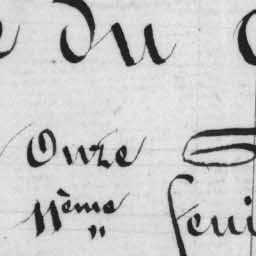 du
Onze
11ème feui
"